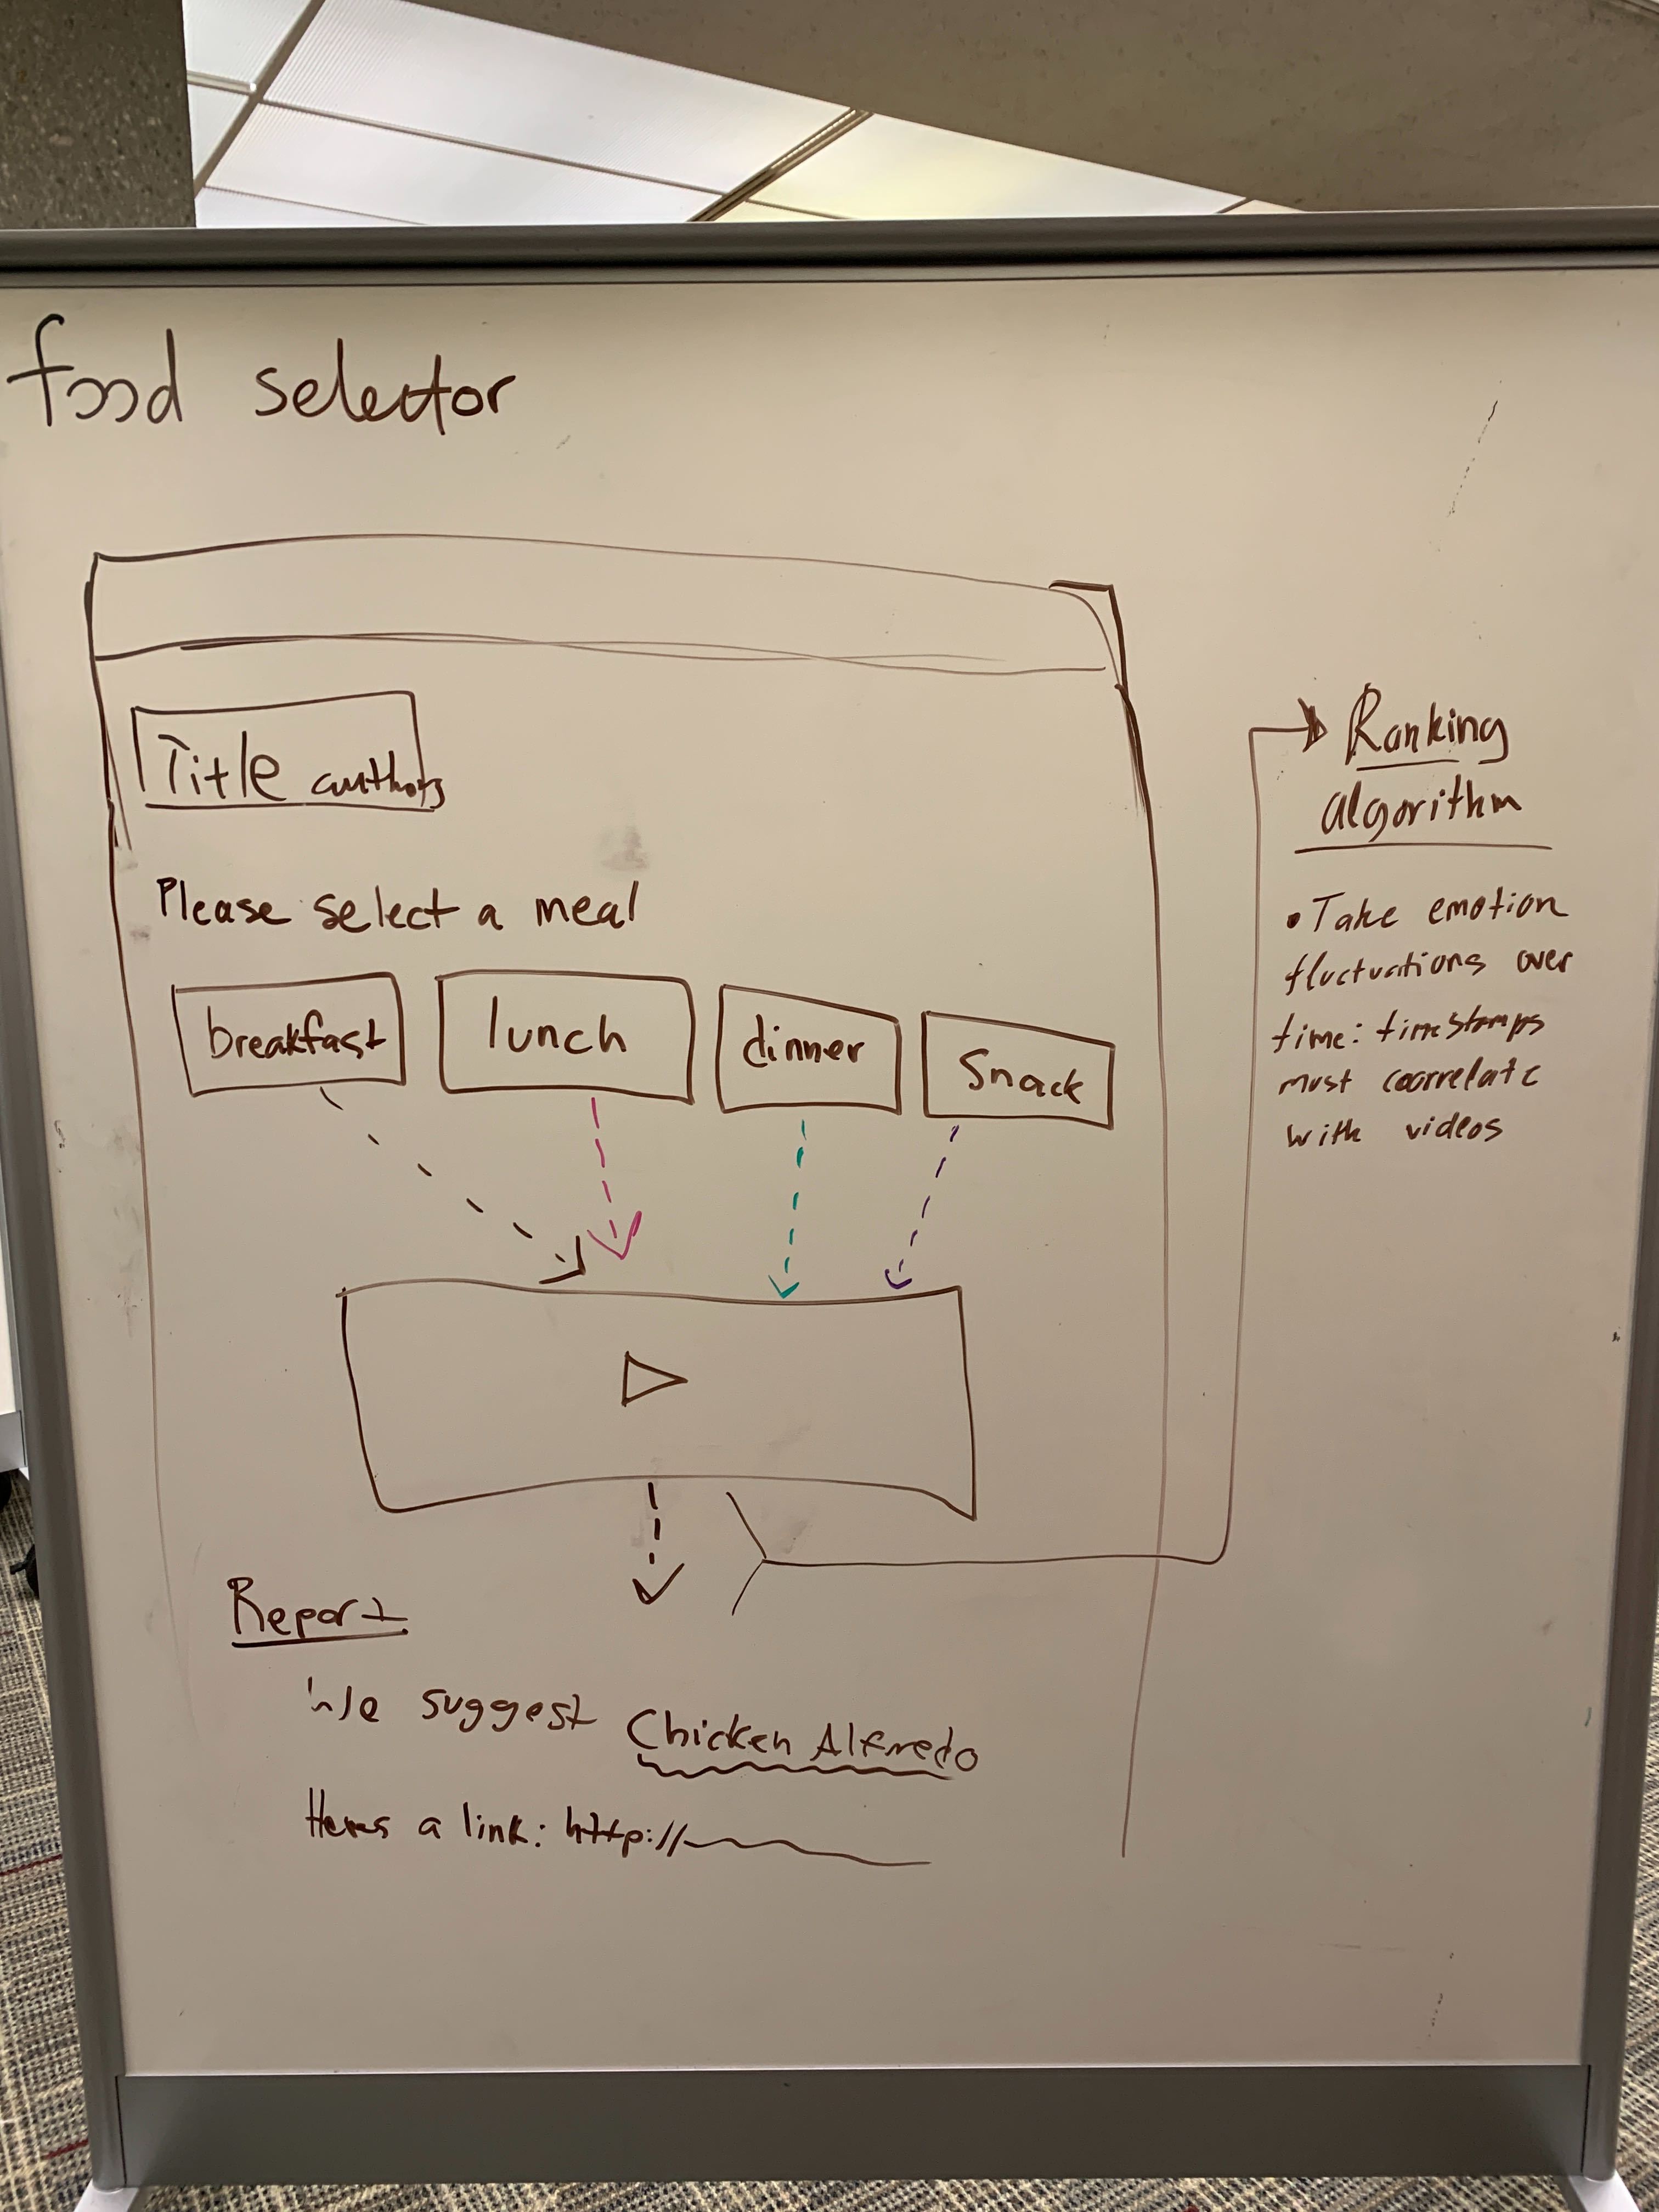 food selector
Title authors
Please select a meal
breakfast lunch dinner Snack
Report
We suggest Chicken Alfredo
Heres a link: http://
Ranking
algorithm
• Take emotion
fluctuations over
time: timestamps
must coorrelate
with videos